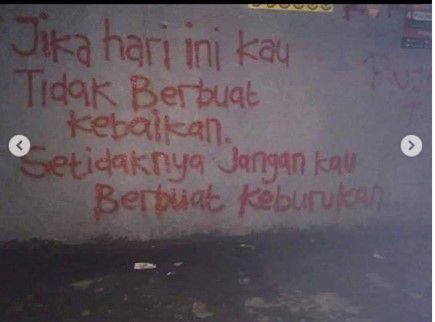 Jika hari ini kau
Tidak Berbuat
kebaikan.
Setidaknya Jangan kau
Berbuat keburukan...